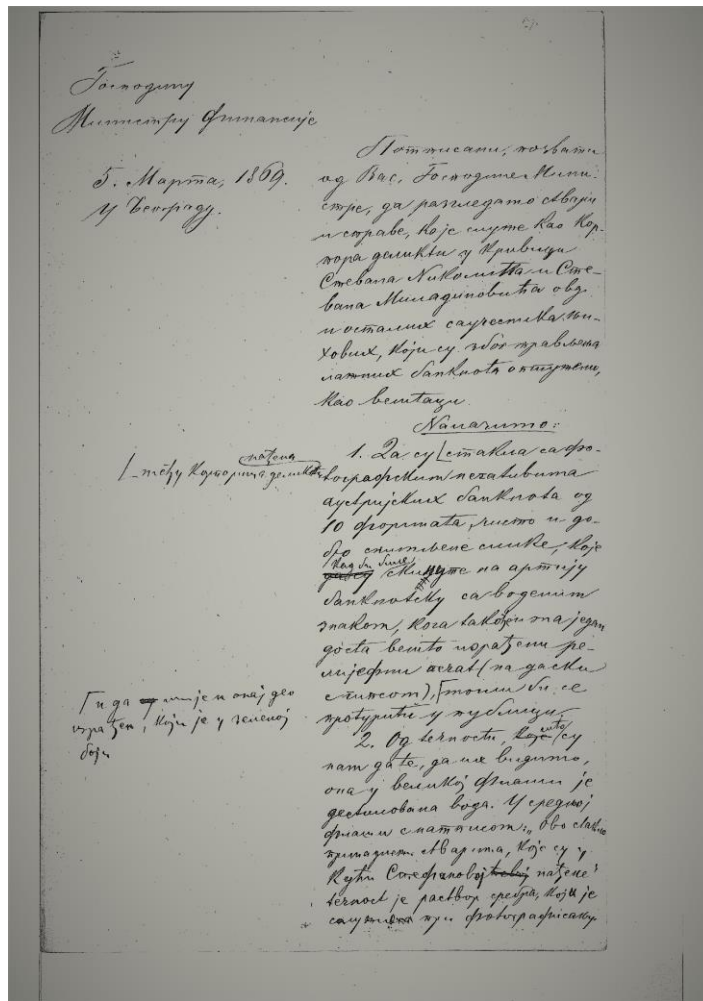 Господину
Министру Финансије
5. Марта, 1869.
у Београду.
Потписани, позвати
од Вас, Господине Мини-
стре, да разгледамо ствари
и справе, које служе као Кор-
пора деликти у кривици
Стевана Николића и Сте-
вана Миладиновића овд.
и осталих саучесника њи-
хових, који су због прављења
лажних банкнота оптужени,
као вештаци.
Налазимо:
1. Да су стакла са фо-
тографским негативима
аустријских банкнота од
10 форината, чисто и до-
бро снимљене слике, које
кад би биле скинуте на артију
банкнотску са воденим
знаком, кога такође има један
доста вешто израђени ре-
лијефни печат (на даски
с гипсом), могли би се
протурити у публици.
међу корпорима деликти нађена
и да им је и онај део
израђен, који је у зеленој
боји
2. Од течности, што су
нам дате, да их видимо,
она у великој флаши је
дестилована вода. У средњој
флаши с натписом: „Ово стакло
припада стварима, које су у
кући Стефановој нађене"
течност је раствор сребра, који је
служио при фотографисању